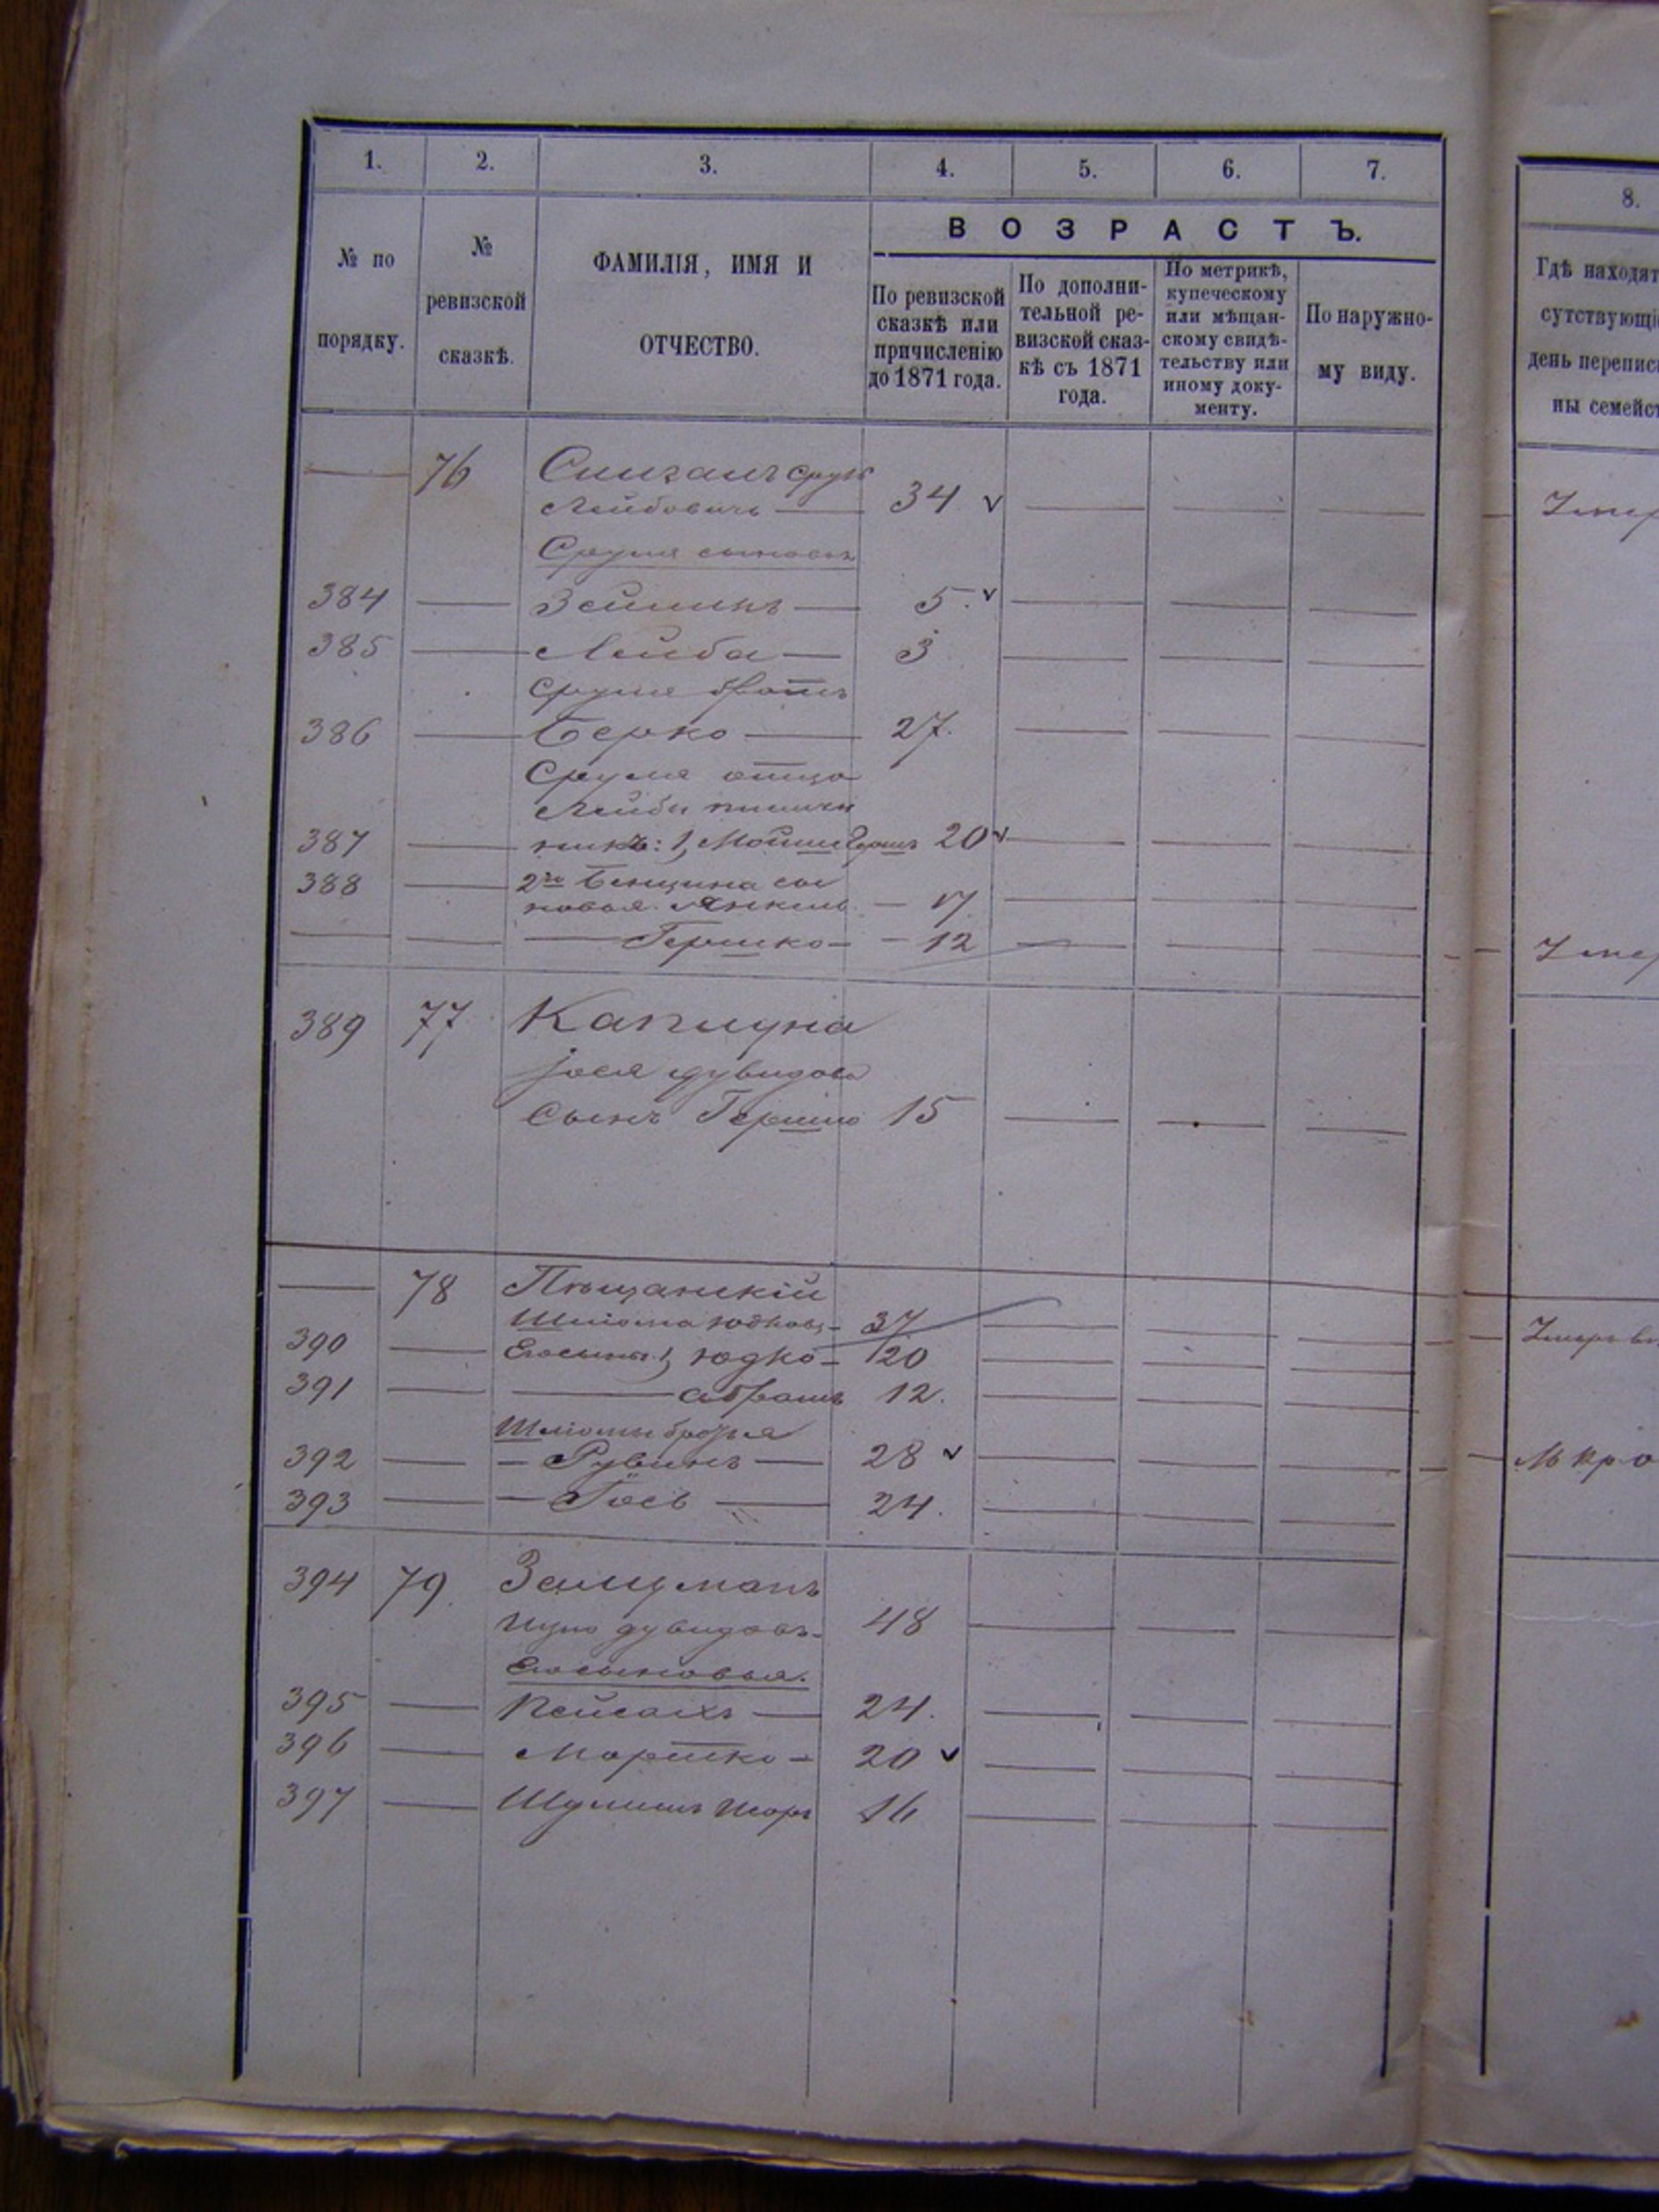 1. 2. 3. 4. 5. 6. 7.
8.
№ по порядку.
№ ревизской сказкѣ.
ФАМИЛІЯ, ИМЯ И ОТЧЕСТВО.
ВОЗРАСТЪ.
По ревизской сказкѣ или причисленію до 1871 года.
По дополни-тельной ре-визской сказ-кѣ съ 1871 года.
По метрикѣ, купеческому или мѣщан-скому свидѣ-тельству или иному доку-менту.
По наружно-му виду.
Гдѣ находят
сутствующі
день перепис
ны семейст
— 76
Лейбовичъ — 34 ѵ — — —
Сруля сыновья
384 — Зейликъ — 5. ѵ — — —
385 — Лейба — 3 — — —
Сруля братъ
386 — Берко — 27. — — —
Сруля отца
Лейбы племян
никъ: 1, Мошко 20 ѵ — — —
387
388 — 2го Бенциона сы
новья Янкель — 17 — — —
— — — Гершко — 12 — — —
Умер
389 77 Капшука
Іося Дувидова
Сынъ Гершко 15 — — —
— 78 Пѣщанскій
Шліома Юдковъ — 37 — — —
390 — Его сынъ 1, Юдко — 20 — — —
391 — — Абрамъ 12. — — —
Шліомы братья
392 — — Рувинъ — 28 ѵ — — —
393 — — Іось — 24. — — —
394 79. Залцманъ
Ицко Дувидовъ — 48 — — —
Его сыновья.
395 — Пейсахъ — 24. — — —
396 — Мошко — 20 ѵ — — —
397 — 16 — — —